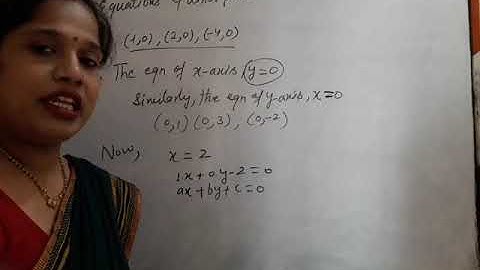 Equations of
(1,0), (2,0), (-4,0)
The eqn of x-axis, y=0
Similarly, the eqn of y-axis, x=0
(0,1) (0,3), (0,-2)
Now, x = 2
1x+0y-2=0
ax+by+c=0